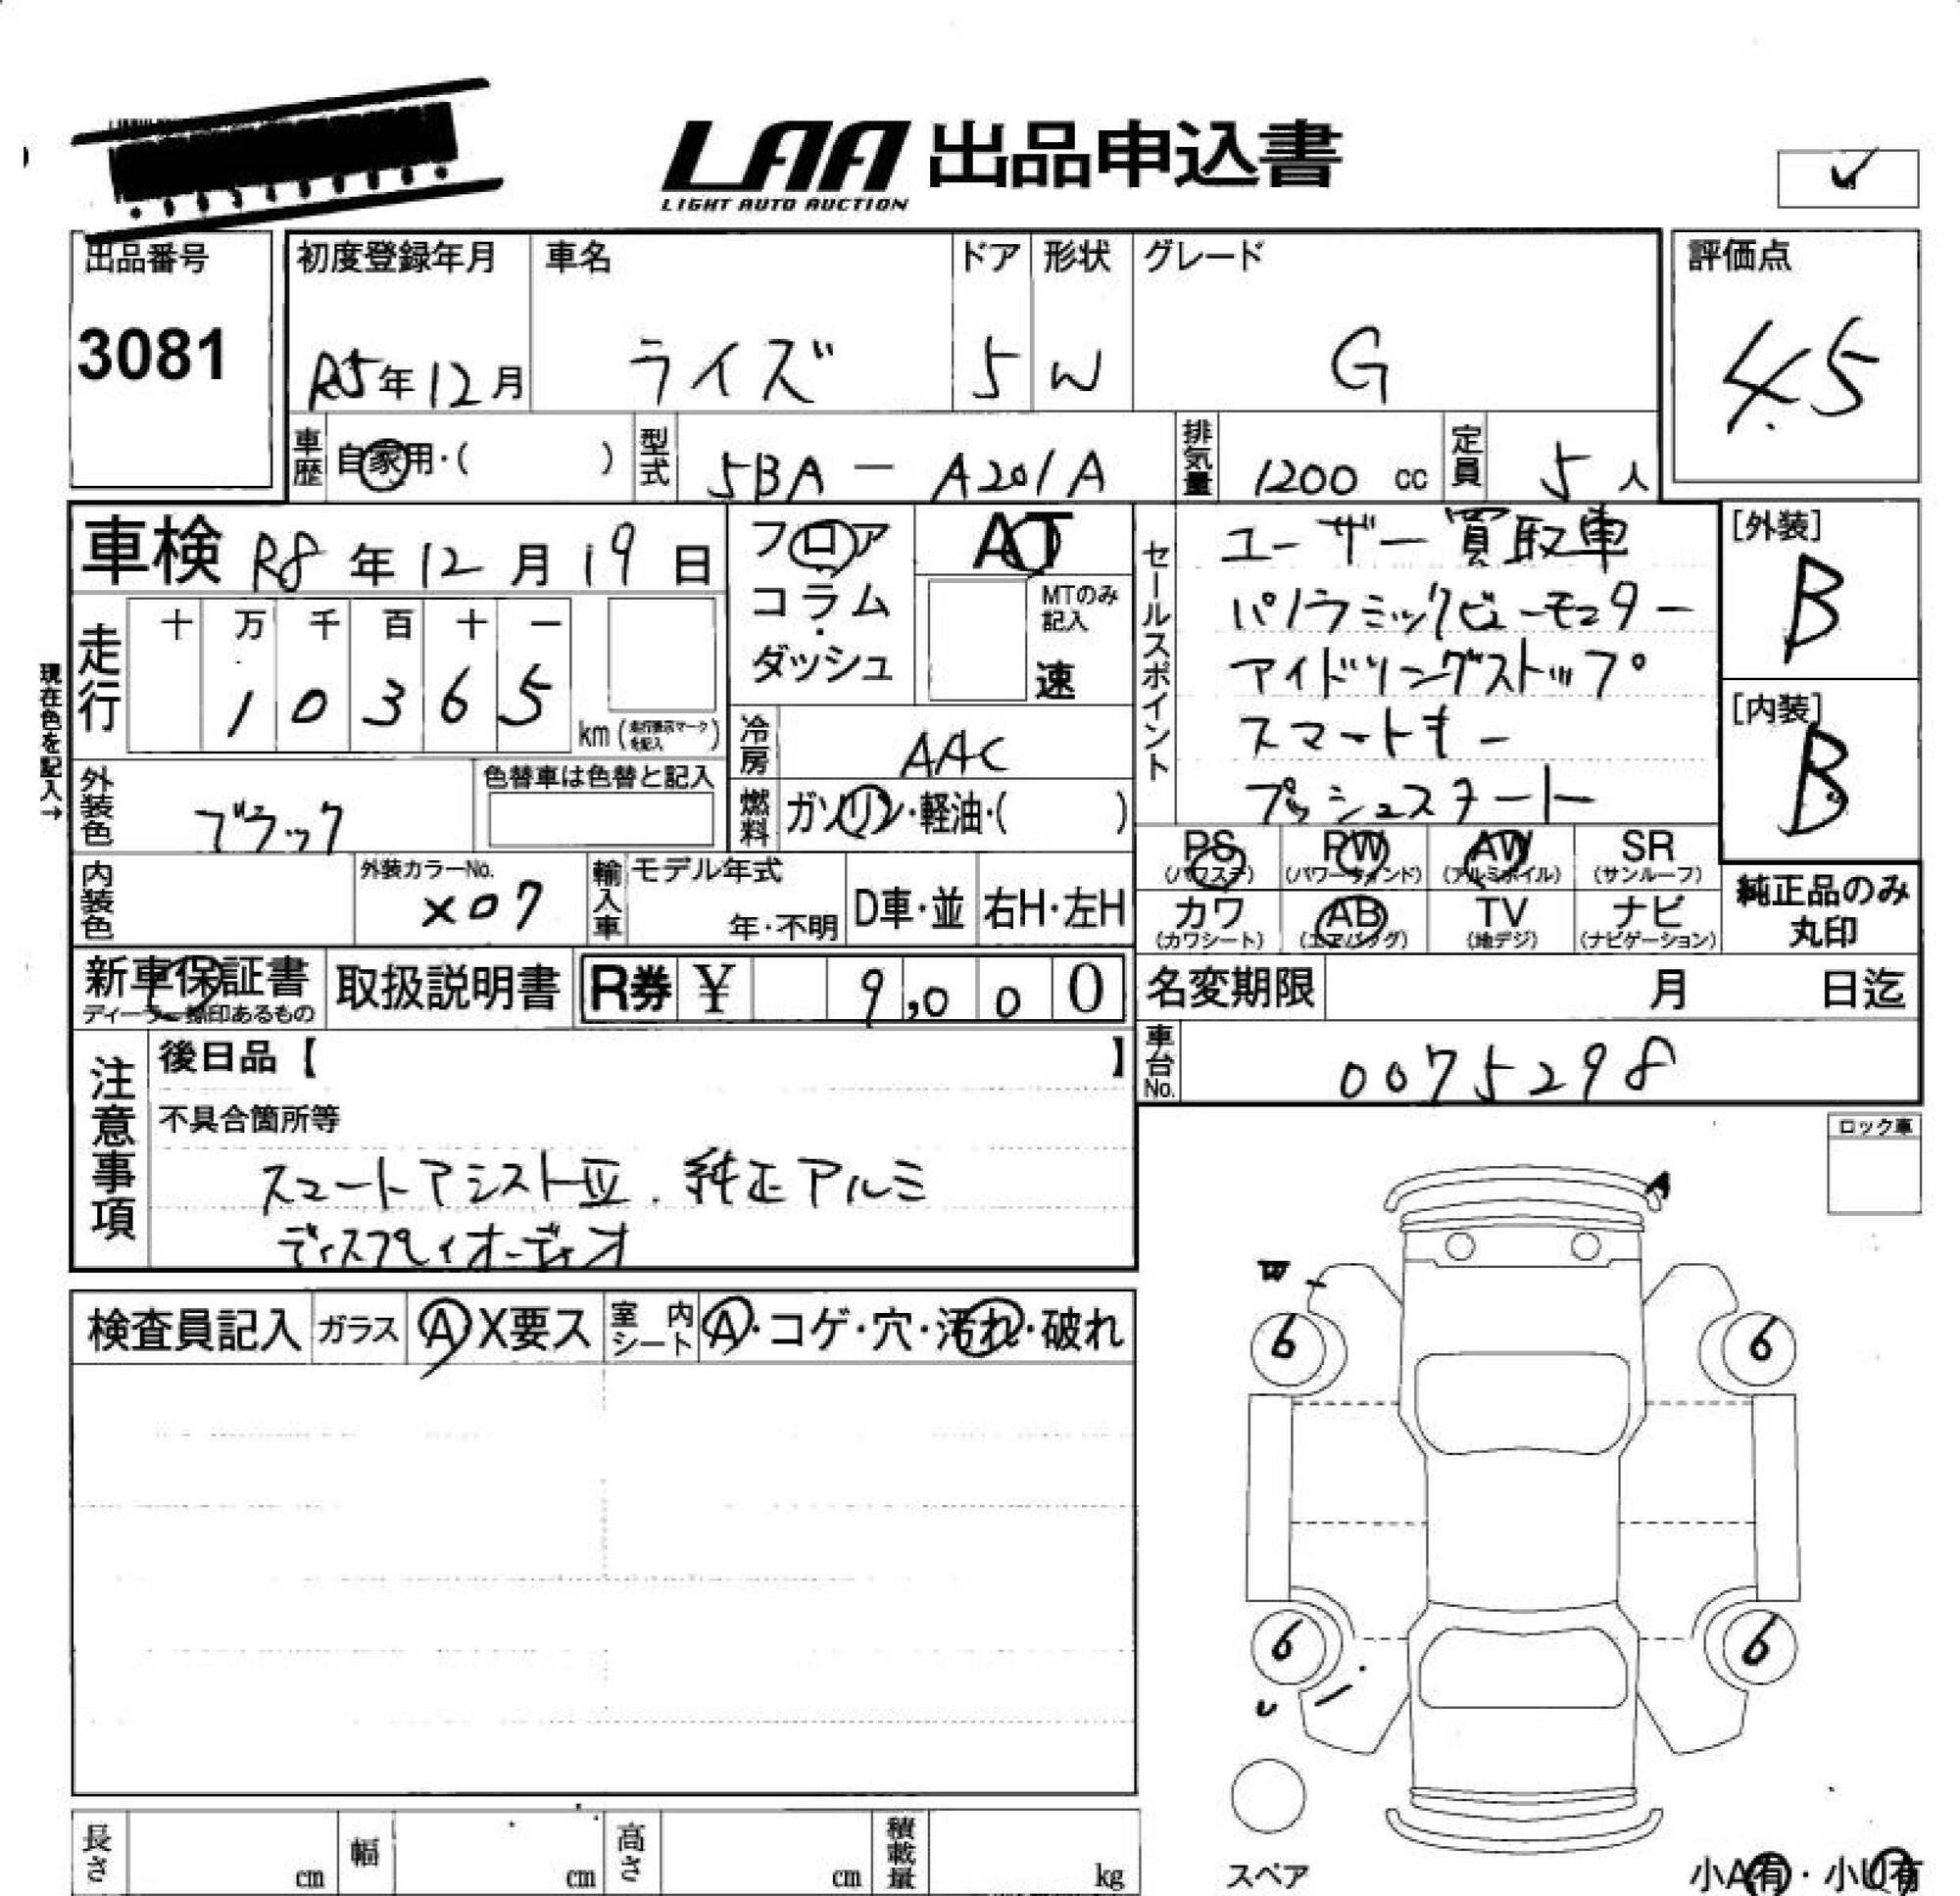 LAA 出品申込書
LIGHT AUTO AUCTION
✓
出品番号
3081
初度登録年月
R5年12月
車名
ライズ
ドア
5
形状
W
グレード
G
評価点
4.5
車歴 自家用・( )
型式 5BA - A201A
排気量 1200 cc
定員 5人
車検 R8年12月19日
現在色を記入→
走行
十 万 千 百 十 一
1 0 3 6 5
km (走行表示マークを記入)
フロア
コラム
・
ダッシュ
AT
MTのみ記入
速
冷房 AAC
燃料 ガソリン・軽油・( )
セールスポイント
ユーザー買取車
パノラミックビューモニター
アイドリングストップ
スマートキー
プッシュスタート
[外装]
B
[内装]
B
外装色 ブラック
色替車は色替と記入
内装色
外装カラーNo.
X07
輸入車
モデル年式
年・不明
D車・並
右H・左H
PS (パワステ)
PW (パワーウィンド)
AW (アルミホイル)
SR (サンルーフ)
カワ (カワシート)
AB (エアバッグ)
TV (地デジ)
ナビ (ナビゲーション)
純正品のみ
丸印
新車保証書
ディーラー捺印あるもの
取扱説明書
R券 ¥ 9,000
名変期限 月 日迄
車台No. 0075298
注意事項
後日品【 】
不具合箇所等
スマートアシストⅢ. 純正アルミ
ディスプレイオーディオ
ロック車
検査員記入
ガラス A X要ス
室内シート A・コゲ・穴・汚れ・破れ
A
W
6
6
6
6
U
スペア
小A有・小U有
長さ cm
幅 cm
高さ cm
積載量 kg